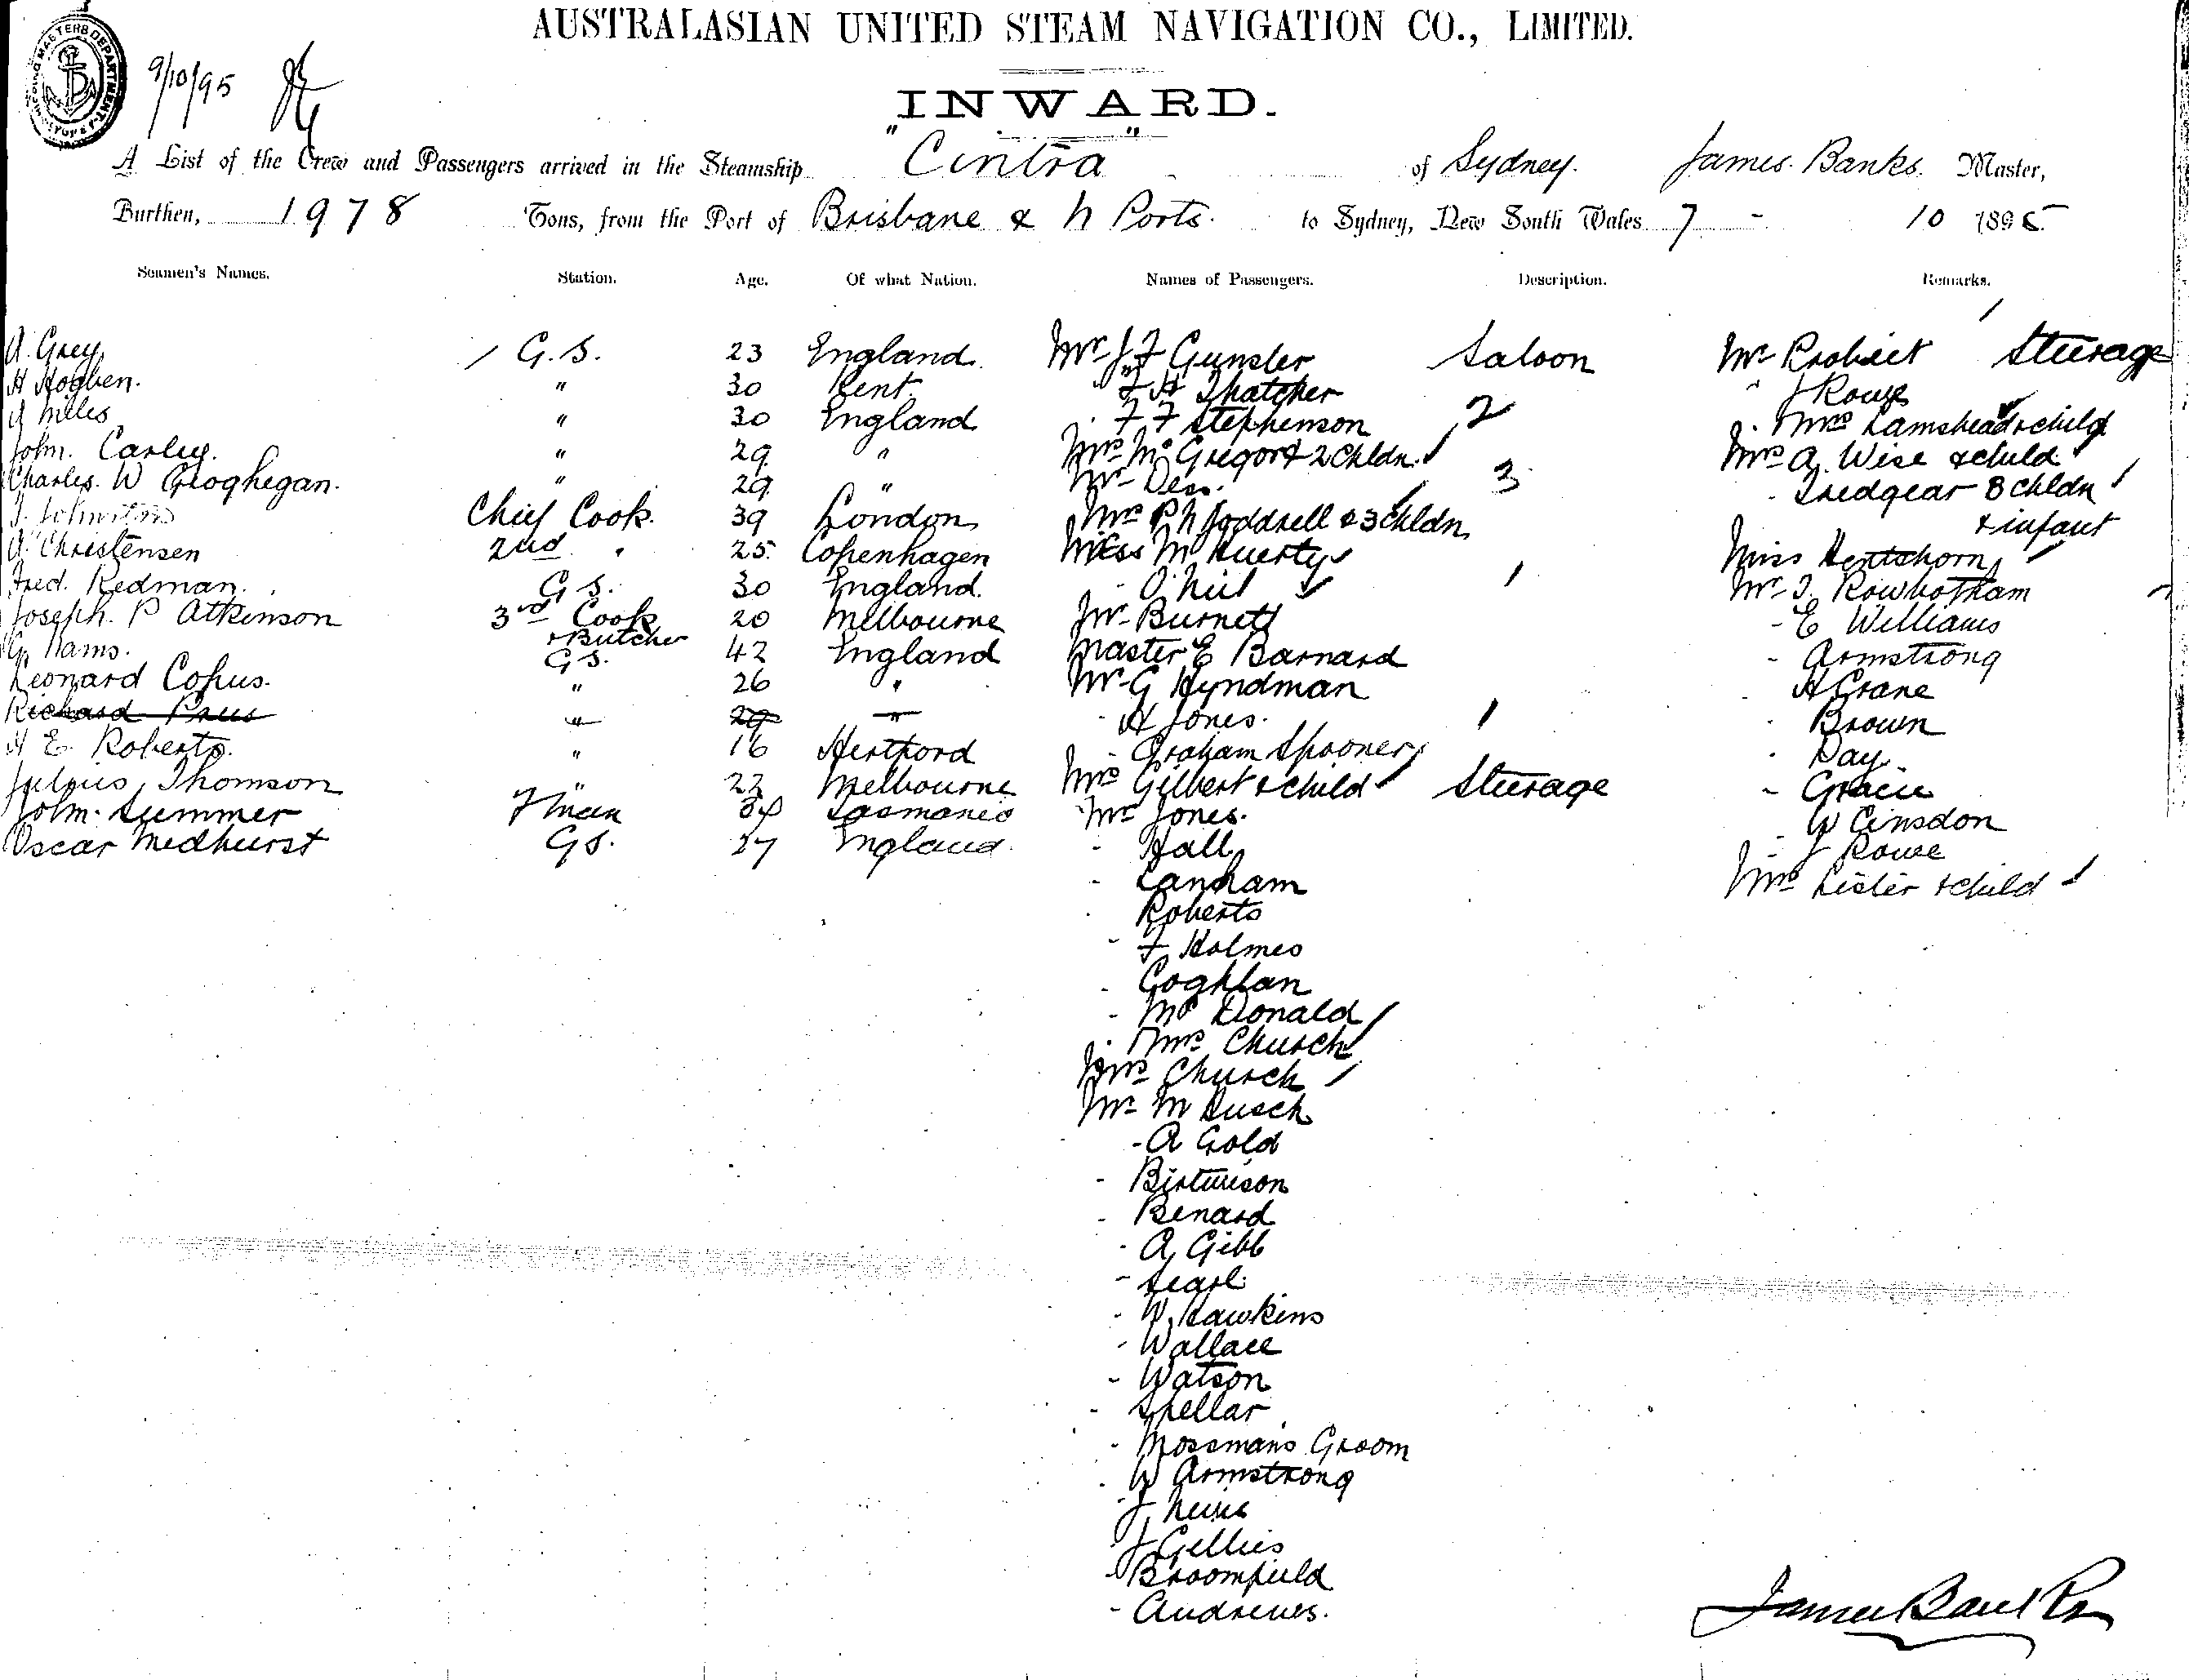 AUSTRALASIAN UNITED STEAM NAVIGATION CO., LIMITED.
9/10/95
INWARD.
A List of the Crew and Passengers arrived in the Steamship "Cintra" of Sydney. James. Banks. Master,
Burthen, 1978 Tons, from the Port of Brisbane & N Ports. to Sydney, New South Wales 7 - 10 1895
Seamen's Names. Station. Age. Of what Nation. Names of Passengers. Description. Remarks.
A. Grey G.S. 23 England. Mr J F Gunsler Saloon Mr Probert Steerage
H Hogben. " 30 Kent. " F H Thatcher " J Rowe
A Miles " 30 England F F Stephenson 2 Mrs Lamshead & child
John. Carley. " 29 " Mrs McGregor & 2 Chldn. Mrs A. Wise & child
Charles. W Geoghegan. " 29 " Mr 3 - Tredgear 8 Chldn
J. Johnston Chief Cook. 39 London Mrs P N Joddrell & 3 Chldn & infant
A. Christensen 2nd " 25 Copenhagen Miss M Huerty Miss Hentschorn
Fred. Redman. G S. 30 England. - O'Neil 1 Mr T. Rowbotham
Joseph. P Atkinson 3rd Cook & Butcher 20 Melbourne Mr Burnett - E Williams
G. Nams. G S. 42 England Master E Barnard - Armstrong
Leonard Copus. " 26 " Mr G Hyndman - H Crane
Richard " 29 " - H Jones. 1 - Brown
H E. Roberts. " 16 Hertford - Graham Spooner - Day
Julius Thomson " 22 Melbourne Mrs Gilbert & child Steerage - Gracie
John. Summer F'man Tasmania Mr Jones. - W Censdon
Oscar Medhurst G S. 27 England. - Hall - J Rowe
- Lanham Mrs Lister & child
- Roberts
- F Holmes
- Coghlan
- McDonald
- Mrs Church
Mrs Church
Mr M Busch
- A Gold
- Birtwison
- Benard
- A Gibb
- Searl
- W. Hawkins
- Wallace
- Watson
- Spellar
- Mossmans Groom
- W Armstrong
- J
- J Gellies
- Broomfield
- Andrews.
James Banks